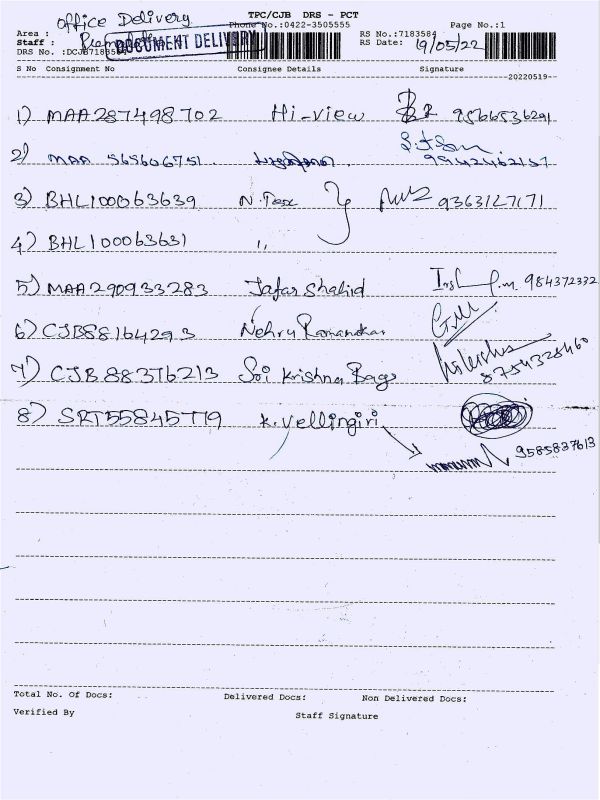 office Delivery
TPC/CJB DRS - PCT
Phone No.:0422-3505555
Page No.:1
Area :
RS No.:7183584
Staff :
DOCUMENT DELIVERY
RS Date: 19/05/22
DRS No. :DCJB7183584
S No Consignment No Consignee Details Signature
--20220519--
1) MAA287498702 Hi-view 9566536291
2) MAA 565606751.
3) BHL100063639 N. Tex 9363127171
4) BHL100063631 "
5) MAA290933283 Jafar Shahid 984372332
6) CJB88164293 Nehru
7) CJB 88376213 Sri Krishna Bags 8754328460
8) SRT55845779 K. Vellingiri
9585837613
Total No. Of Docs: Delivered Docs: Non Delivered Docs:
Verified By Staff Signature